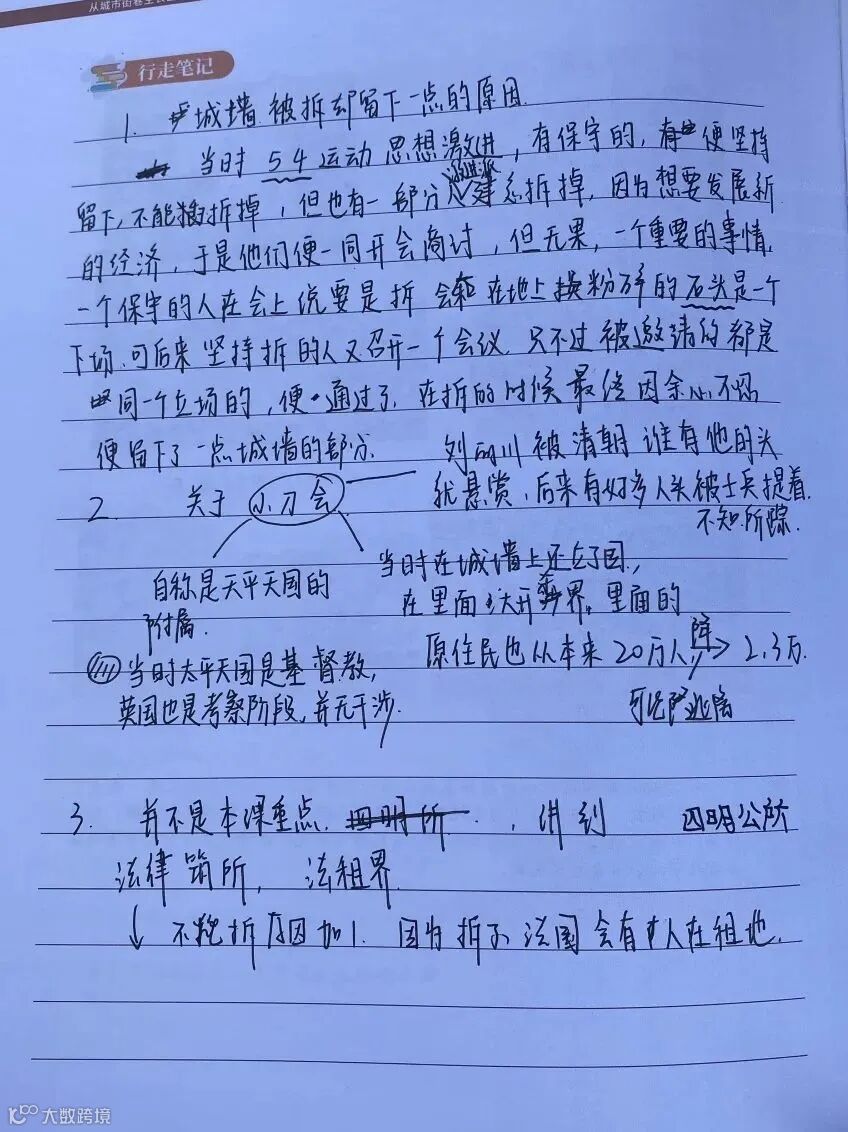 从城市街巷至长
行走笔记
1. 城墙被拆却留下一点的原因.
当时 54运动 思想激进，有保守的，便坚持
留下，不能拆掉，但也有一部分人建忘拆掉，因为想要发展新
的经济，于是他们便一同开会商讨，但无果，一个重要的事情，
一个保守的人在会上说要是拆 会 在地上 粉碎的石头是一个
下场.可后来坚持拆的人又召开一个会议.只不过被邀请的都是
同一个立场的，便通过了.在拆的时候最终因余
便留下了一点城墙的部分.
刘丽川被清朝 谁有他的头
就悬赏，后来有好多人头被士兵提着.
不知所踪.
2. 关于 小刀会
自称是天平天国的
附属.
当时太平天国是基督教，
英国也是考察阶段，并无干涉.
当时在城墙上还
在里面 大开 界. 里面的
原住民也从本来20万人 降→ 2,3万.
逃离
3. 并不是本课重点. 四明所 ，讲到 四明公所
法律 所， 法租界.
↓ 不 拆 原因如1. 因为拆了 法国会有 人在租地.
大数跨境